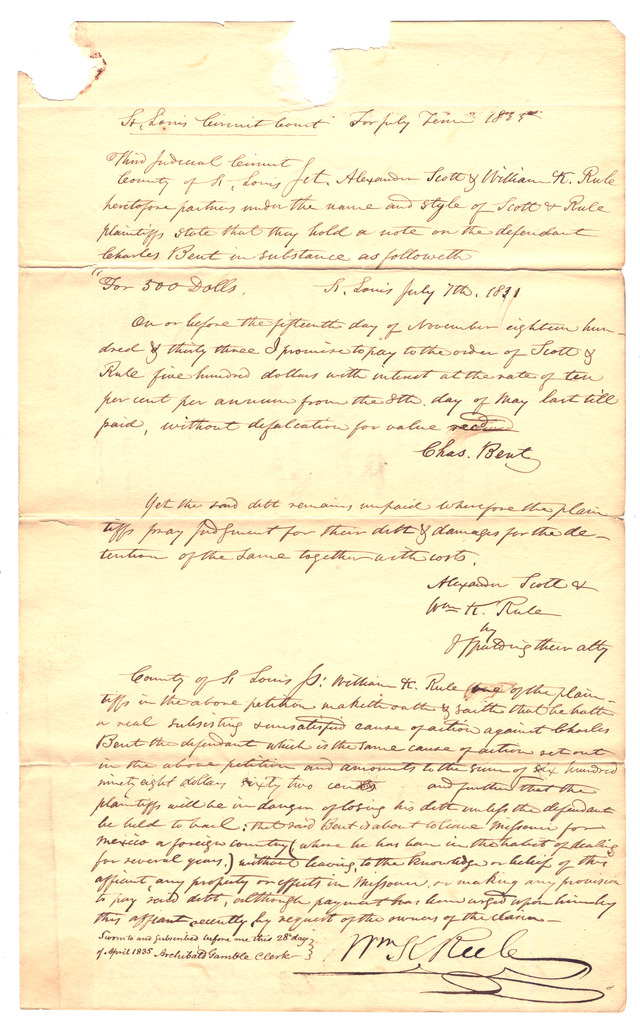 St. Louis Circuit Court For July Term 1835
Third Judicial Circuit
County of St. Louis Sct. Alexander Scott & William K. Rule
heretofore partners under the name and style of Scott & Rule
plaintiffs state that they hold a note on the defendant
Charles Bent in substance as followeth
"For 500 Dolls. St. Louis July 7th. 1831
On or before the fifteenth day of November eighteen hun-
dred & thirty three I promise to pay to the order of Scott &
Rule five hundred dollars with interest at the rate of ten
per cent per annum from the 8th. day of May last till
paid, without defalcation for value received
Chas. Bent
Yet the said debt remains unpaid wherefore the plain-
tiffs pray judgment for their debt & damages for the de-
tention of the same together with costs.
Alexander Scott &
Wm K. Rule
by
J Spalding their atty
County of St Louis Ss: William K. Rule one of the plain-
tiffs in the above petition maketh oath & saith that he hath
a real subsisting & unsatisfied cause of action against Charles
Bent the defendant which is the same cause of action set out
in the above petition and amounts to the sum of six hundred
ninety eight dollars sixty two cents and further that the
plaintiffs will be in danger of losing his debt unless the defendant
be held to bail: that said Bent is about to leave Missouri for
Mexico a foreign country (where he has been in the habit of dealing
for several years,) without leaving, to the knowledge or belief of this
affiant, any property or effects in Missouri, or making any provision
to pay said debt, although payment has been urged upon him by
this affiant recently, by request of the owners of the claim—
Sworn to and subscribed before me this 28th day
of April 1835 Archibald Gamble Clerk
Wm K Rule